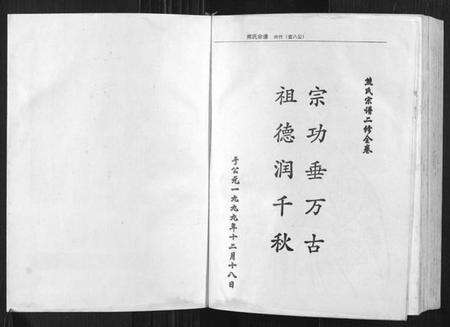 熊氏宗谱
熊氏宗谱二修全卷
宗功垂万古
祖德润千秋
于公元一九九九年十二月十八日